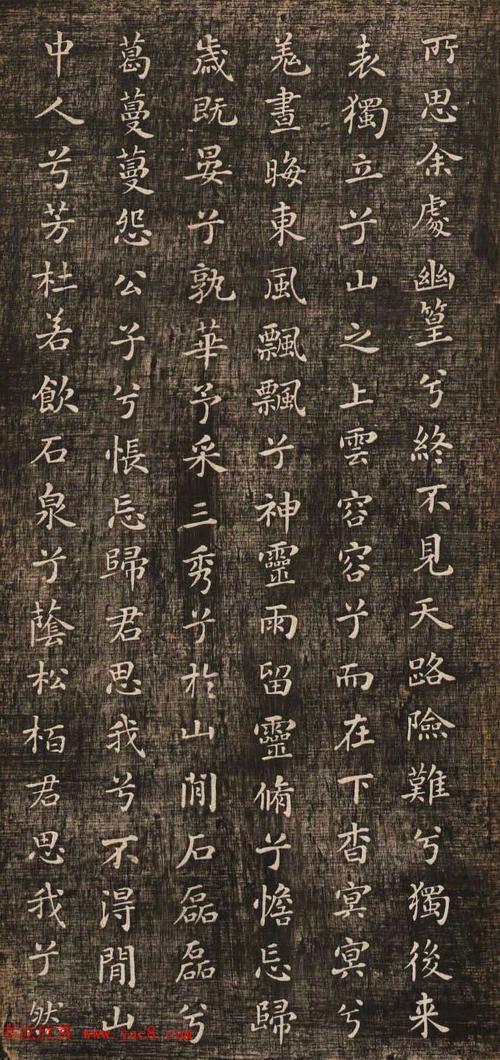 所思余處幽篁兮終不見天路險難兮獨後来
表獨立兮山之上雲容容兮而在下杳冥冥兮
羌晝晦東風飄飄兮神靈雨留靈脩兮憺忘歸
歲既晏兮孰華予采三秀兮於山間石磊磊兮
葛蔓蔓怨公子兮悵忘歸君思我兮不得閒山
中人兮芳杜若飲石泉兮蔭松栢君思我兮然
www.yac8.com